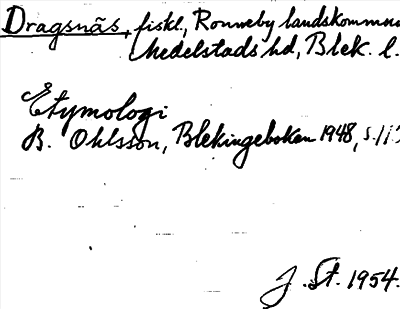 Dragsnäs, fiskl., Ronneby landskommun
Medelstads hd, Blek. l.
Etymologi
B. Ohlsson, Blekingeboken 1948, s.
J. St. 1954.